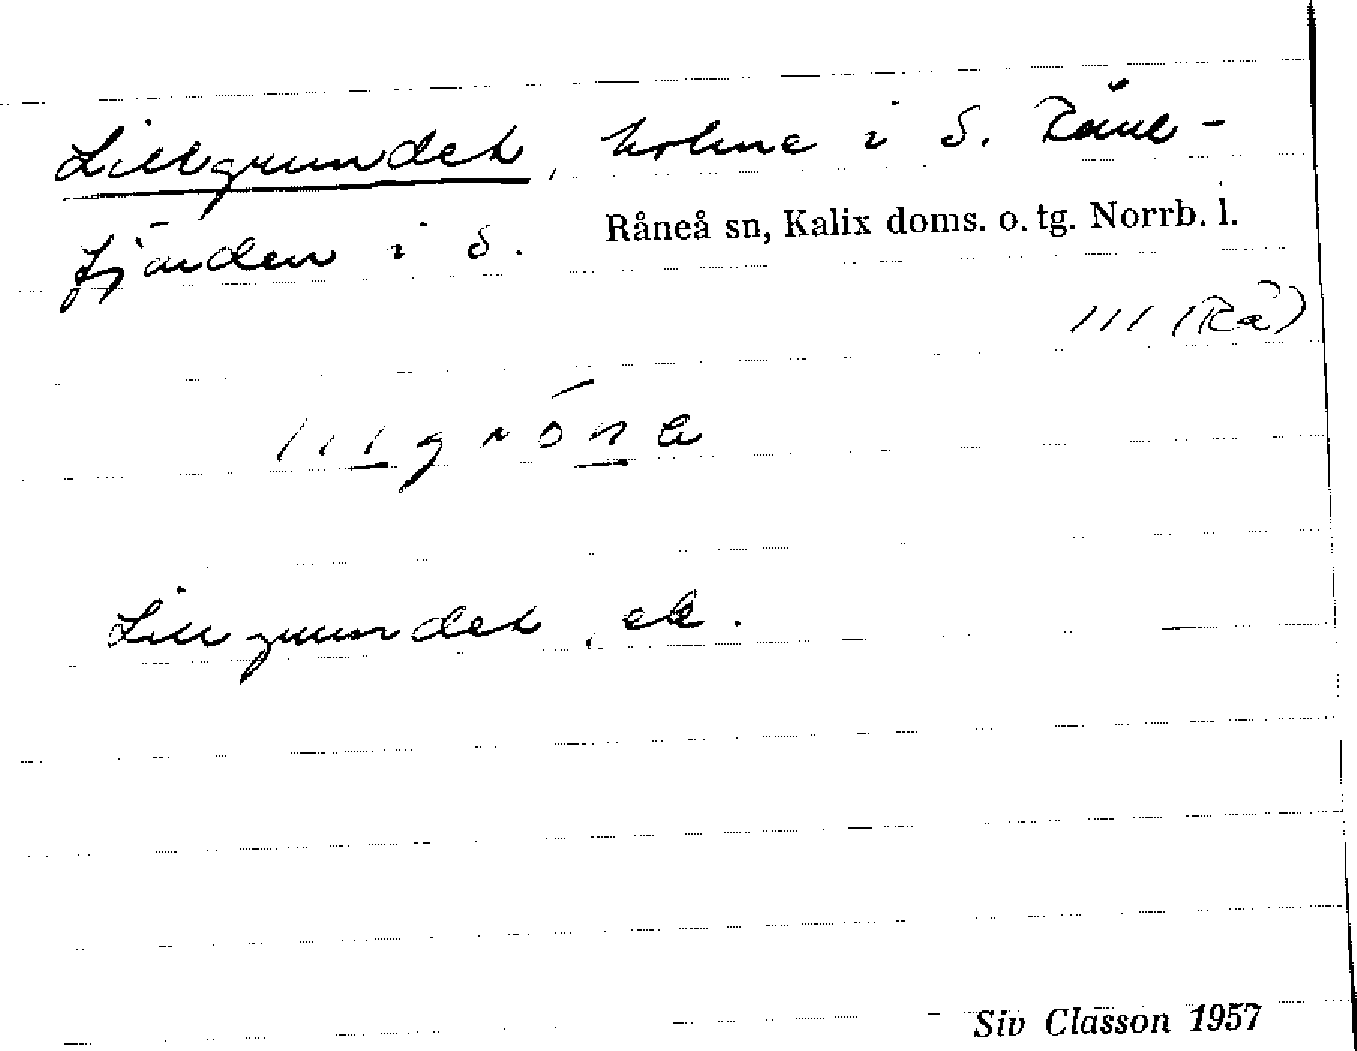 Lillgrundet, holme i S. Råne-
fjärden i S. Råneå sn, Kalix doms. o. tg. Norrb. l.
111 (Rå)
Lillgrundet, ek.
Siv Classon 1957